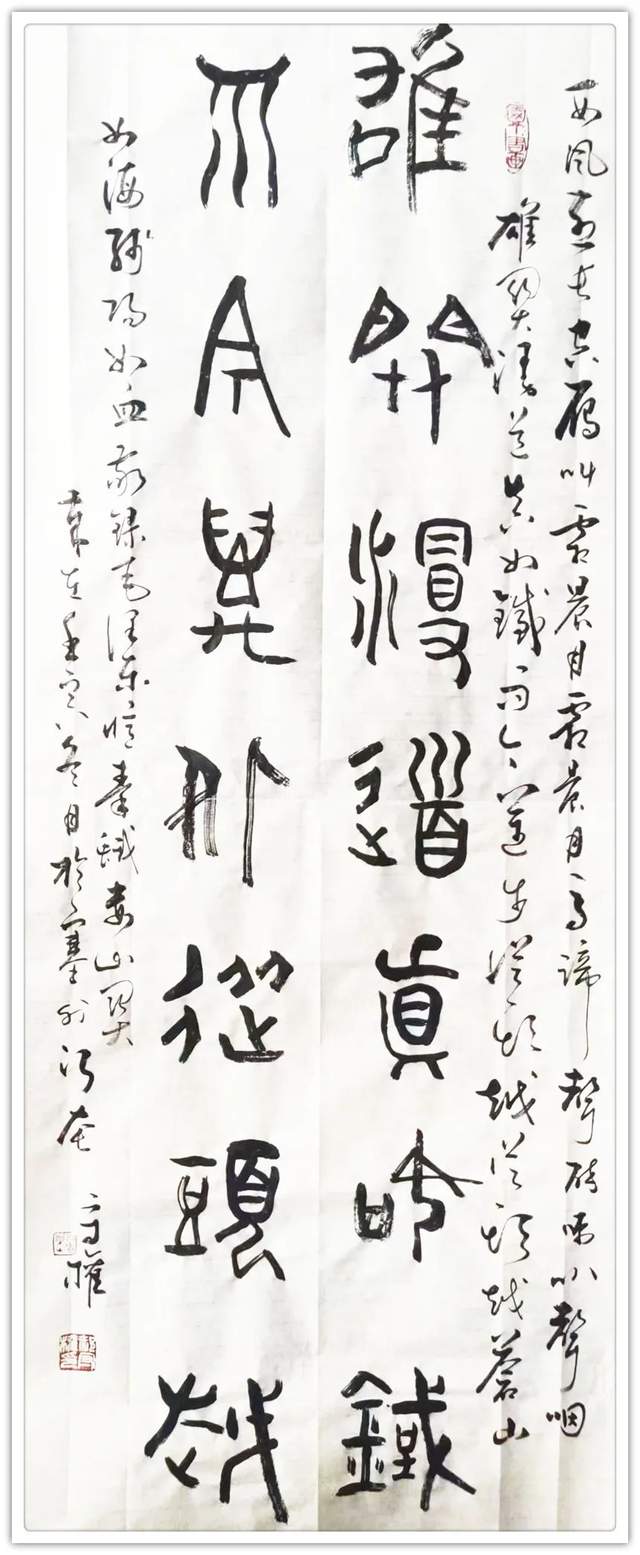 西风烈长空雁叫霜晨月霜晨月马蹄聲碎喇叭聲咽
雄关漫道真如鐵而今邁步從頭越從頭越蒼山
雄關漫道真如鐵
而今邁步從頭越
如海残陽如血敬錄毛澤東憶秦娥婁山关
歲在壬寅冬月於塞外